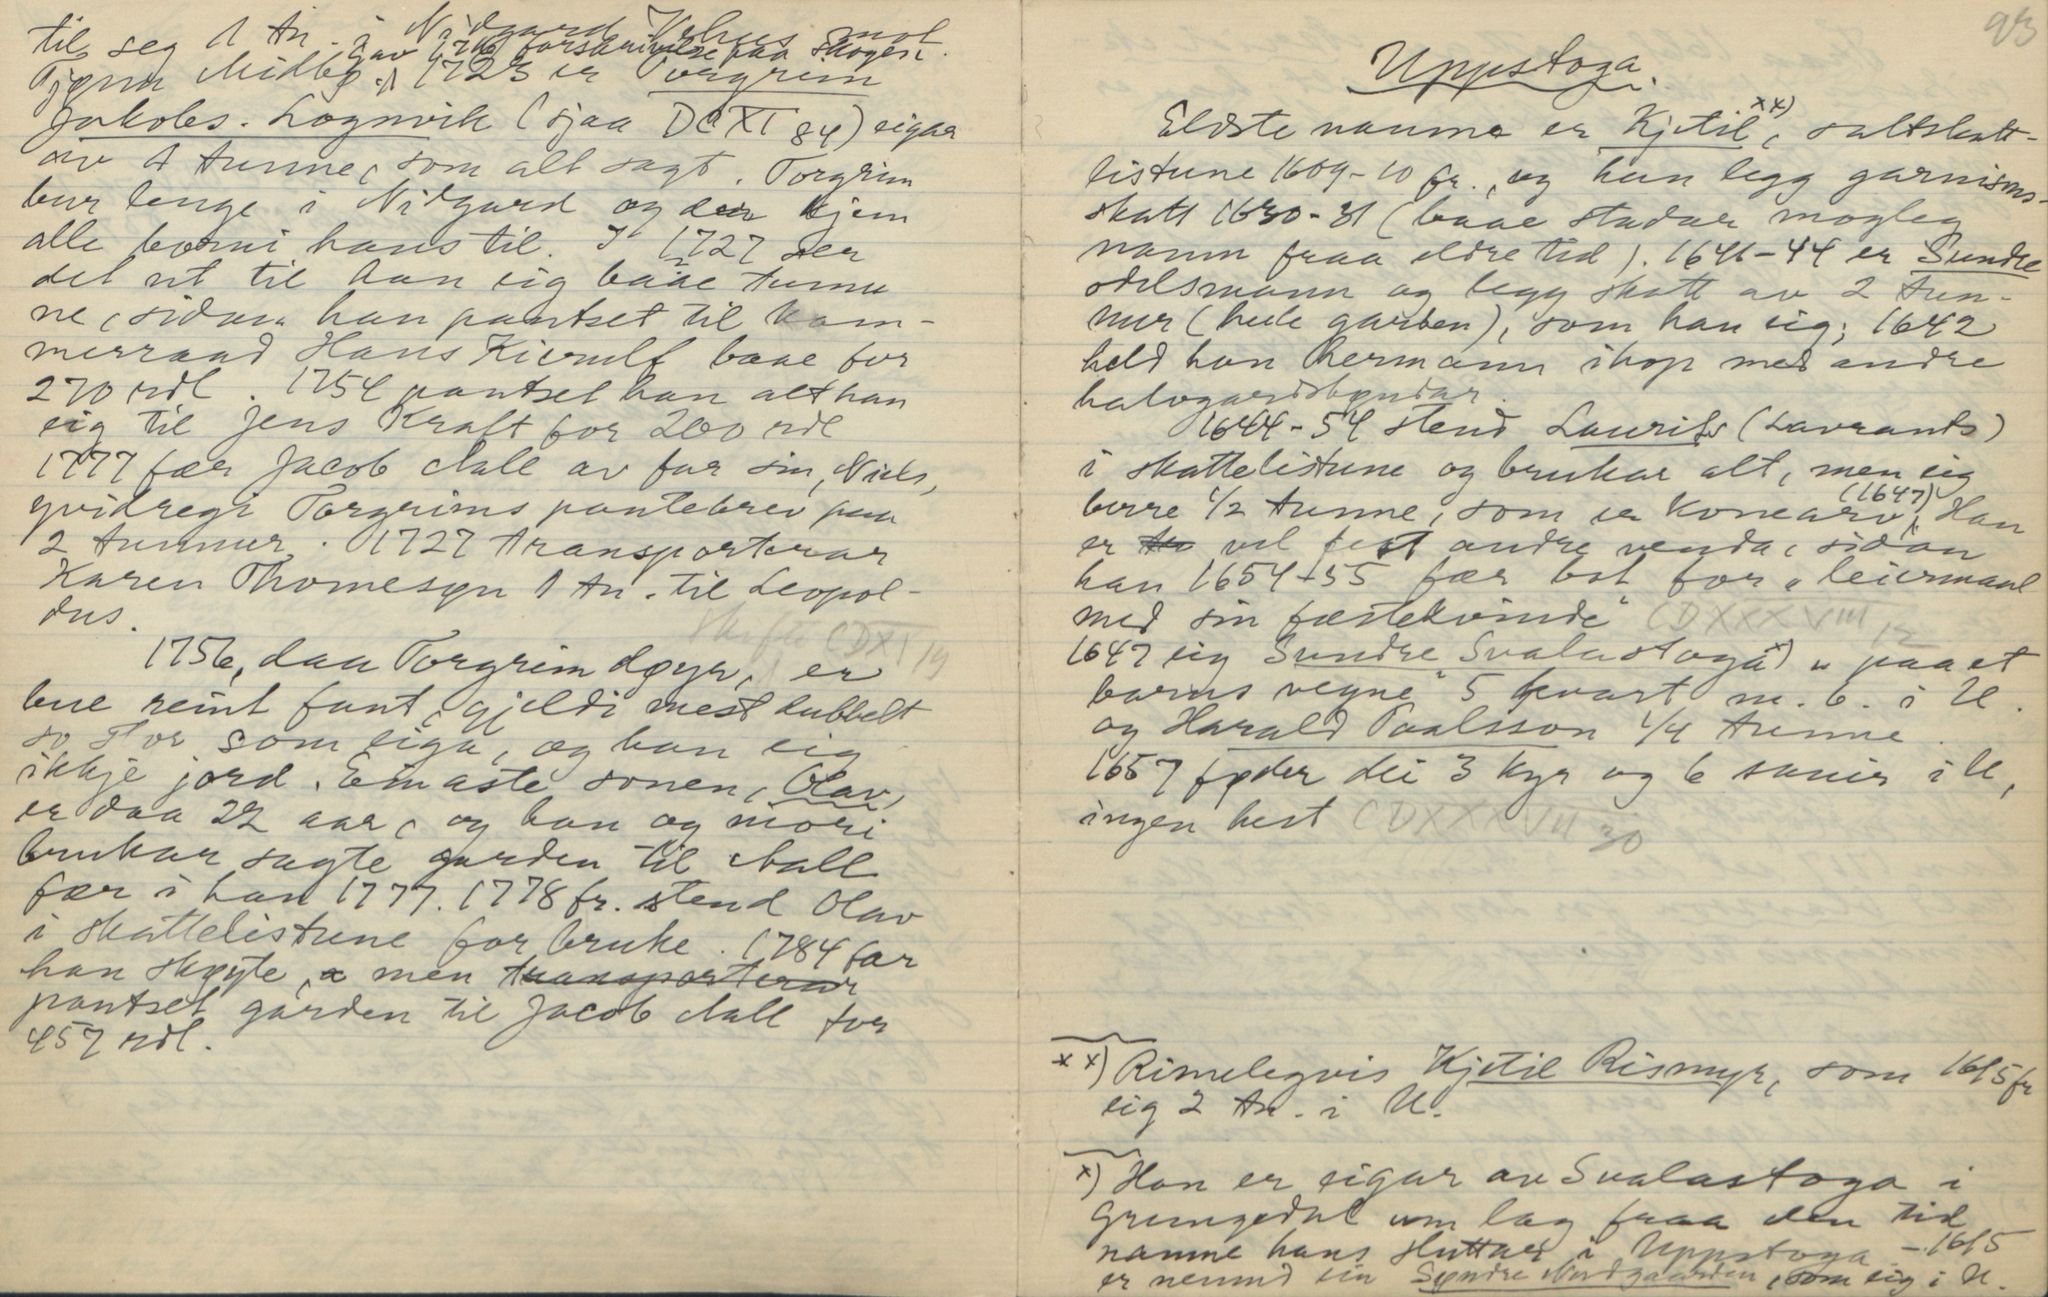 til seg 1 tn. i Nidgard Vehus mot
gav 1716 forskrivelse paa skogen.
Tjønn Midbø. 1723 er Torgrim
Jakobs. Lognvik (sjaa DCXI 84) eigar
av 1 tunne, som alt sagt. Torgrim
bur lenge i Nidgard og der kjem
alle borni hans til. I 1727 ser
det ut til han eig baae tunnu
ne, sidan han pantset til kam-
merraad Hans Kierulf baae for
270 rdl. 1754 pantset han alt han
eig til Jens Kraft for 200 rdl
1777 fær Jacob Aall av far sin, Niels,
yvidregi Torgrims pantebrev paa
2 tunnur. 1727 transporterar
Karen Thomesyn 1 tn. til Leopol-
dus.
skifte CDXI 19
1756, daa Torgrim døyr, er
bue reint fant, gjeldi mest dubbelt
so stor som eiga, og han eig
ikkje jord. Einaste sonen, Olav,
er daa 22 aar, og han og mori
brukar sagte garden til Aall
fær i han 1777. 1778 fr. stend Olav
i skattelistune for bruke. 1784 fær
han skøyte, men transporterar
pantset garden til Jacob Aall for
457 rdl.
93
Uppstoga.
Eldste namne er Kjetil xx), saltskatt-
listune 1609-10 fr., og han legg garnisons-
skatt 1630-31 (baae stadar mogleg
namn fraa eldre tid). 1641-44 er Sundre
odelsmann og legg skatt av 2 tun-
nur (heile garden), som han eig; 1642
held han hermann ihop med andre
halvgardsbøndar.
1644-54 stend Laurits (Lavrants)
i skattelistune og brukar alt, men eig
berre 1/2 tunne, som er konearv (1647). Han
er vel fest andre venda, sidan
han 1654-55 fær bot for „leiermaal
med sin fæstekvinde" CDXXXVIII 12
1647 eig Sundre Svalastoga x) „paa et
barns vegne" 5 kvart m. b. i U.
og Harald Paalsson 1/4 tunne.
1657 føder dei 3 kyr og 6 sauer i U,
ingen hest CDXXXVII 30
xx) Rimelegvis Kjetil Rismyr, som 1615 fr
eig 2 tn. i U.
x) Han er eigar av Svalastoga i
Grungedal um lag fraa den tid
namne hans sluttar i Uppstoga - 1615
er nemnd ein Søndre Nordgaarden, som eig i U.